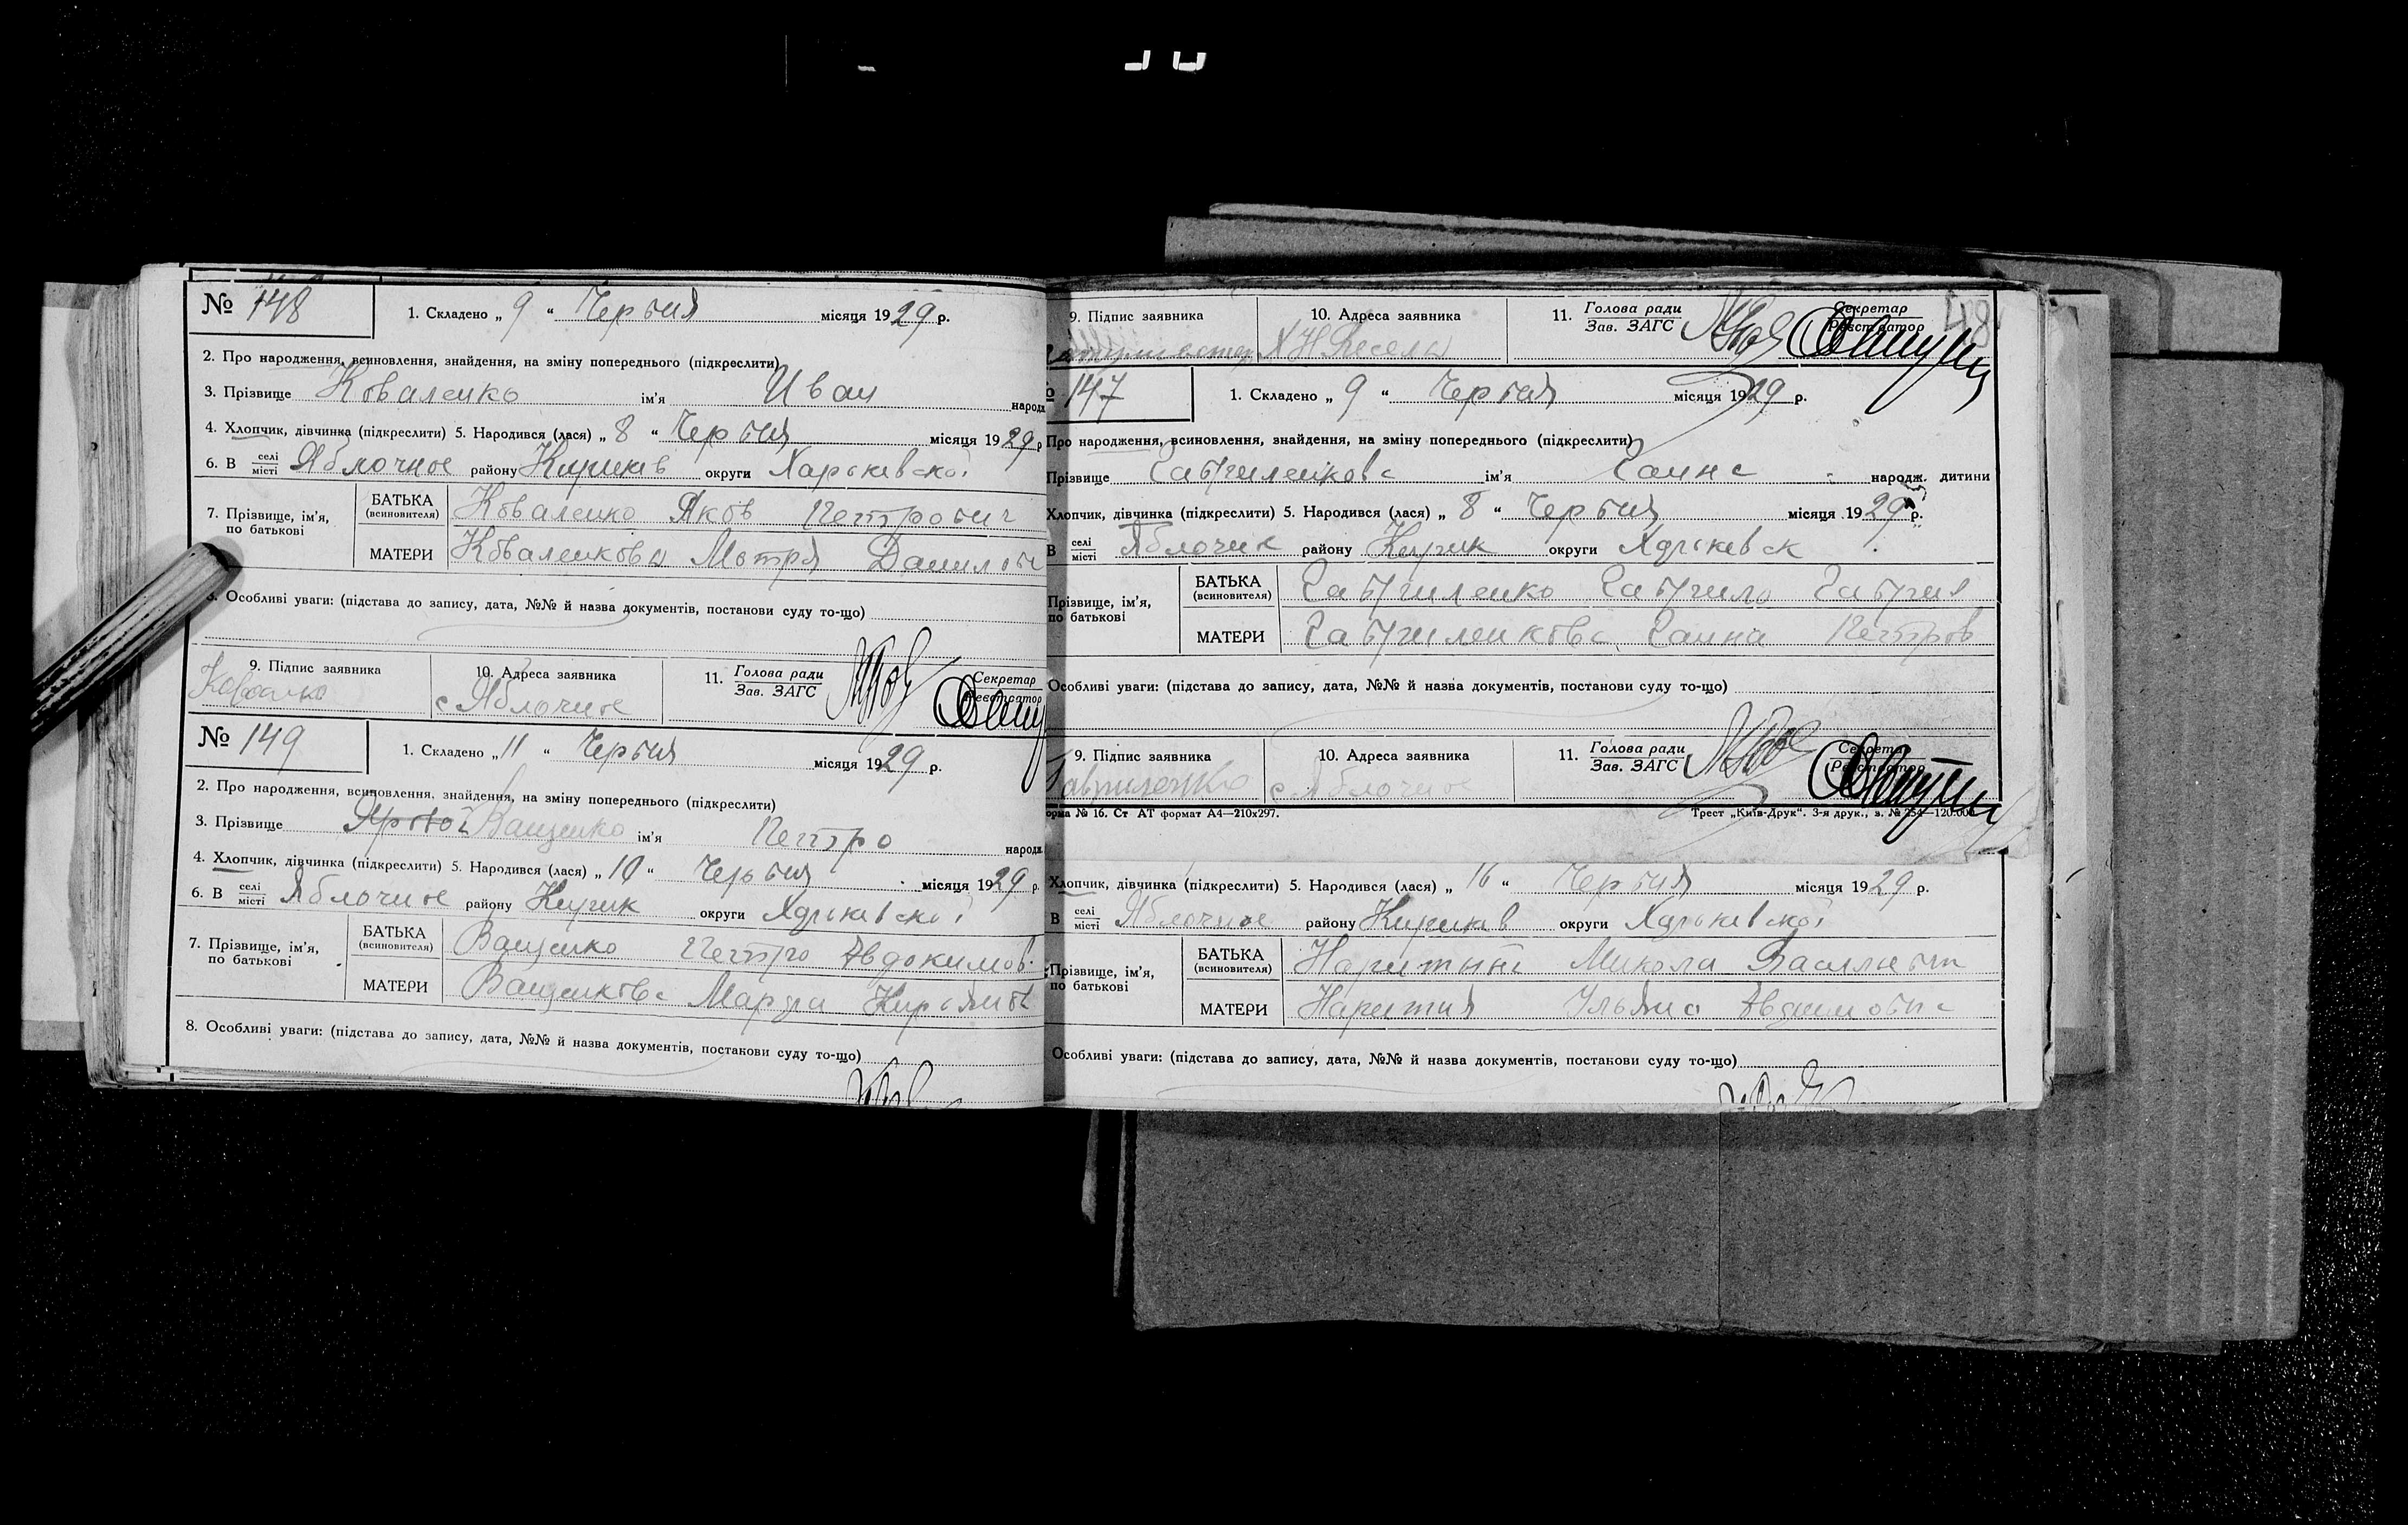 № 148
1. Складено „ 9 “ Червня місяця 1929 р.
2. Про народження, всиновлення, знайдення, на зміну попереднього (підкреслити)
3. Прізвище Коваленко ім'я Иван народж
4. Хлопчик, дівчинка (підкреслити) 5. Народився (лася) „ 8 “ Червня місяця 1929 р
6. В селі місті Яблочное району Кириків округи Харьківської
7. Прізвище, ім'я, по батькові
БАТЬКА (всиновителя) Коваленко Яков Петрович
МАТЕРИ Коваленкова Мотря Данилов
8. Особливі уваги: (підстава до запису, дата, №№ й назва документів, постанови суду то-що)
9. Підпис заявника 10. Адреса заявника 11. Голова ради Зав. ЗАГС Секретар Реєстратор
Коваленко с Яблочное
№ 149
1. Складено „ 11 “ Червня місяця 1929 р.
2. Про народження, всиновлення, знайдення, на зміну попереднього (підкреслити)
3. Прізвище Яровой Ващенко ім'я Петро народж
4. Хлопчик, дівчинка (підкреслити) 5. Народився (лася) „ 10 “ Червня місяця 1929 р.
6. В селі місті Яблочное району Кирик округи Харьківської
7. Прізвище, ім'я, по батькові
БАТЬКА (всиновителя) Ващенко Петро Авдокимов
МАТЕРИ Ващенкова Марфа Кирьянов
8. Особливі уваги: (підстава до запису, дата, №№ й назва документів, постанови суду то-що)
48
9. Підпис заявника 10. Адреса заявника 11. Голова ради Зав. ЗАГС Секретар Реєстратор
147
1. Складено „ 9 “ Червня місяця 1929 р.
Про народження, всиновлення, знайдення, на зміну попереднього (підкреслити)
Прізвище Гавриленкова ім'я Ганна народж. дитини
Хлопчик, дівчинка (підкреслити) 5. Народився (лася) „ 8 “ Червня місяця 1929 р.
В селі місті Яблочне району Кирик округи Харьківск
Прізвище, ім'я, по батькові
БАТЬКА (всиновителя) Гавриленко Гаврило Гаврил
МАТЕРИ Гавриленкова Ганна Петров
Особливі уваги: (підстава до запису, дата, №№ й назва документів, постанови суду то-що)
9. Підпис заявника 10. Адреса заявника 11. Голова ради Зав. ЗАГС Секретар Реєстратор
Гавриленко с Яблочное
орма № 16. Ст АТ формат А4—210x297. Трест „Київ-Друк“. 3-я друк., з. № 254—120.000
Хлопчик, дівчинка (підкреслити) 5. Народився (лася) „ 16 “ Червня місяця 1929 р.
В селі місті Яблочное району Кириків округи Харьківської
Прізвище, ім'я, по батькові
БАТЬКА (всиновителя) Микола Васильевич
МАТЕРИ Ульяна
Особливі уваги: (підстава до запису, дата, №№ й назва документів, постанови суду то-що)